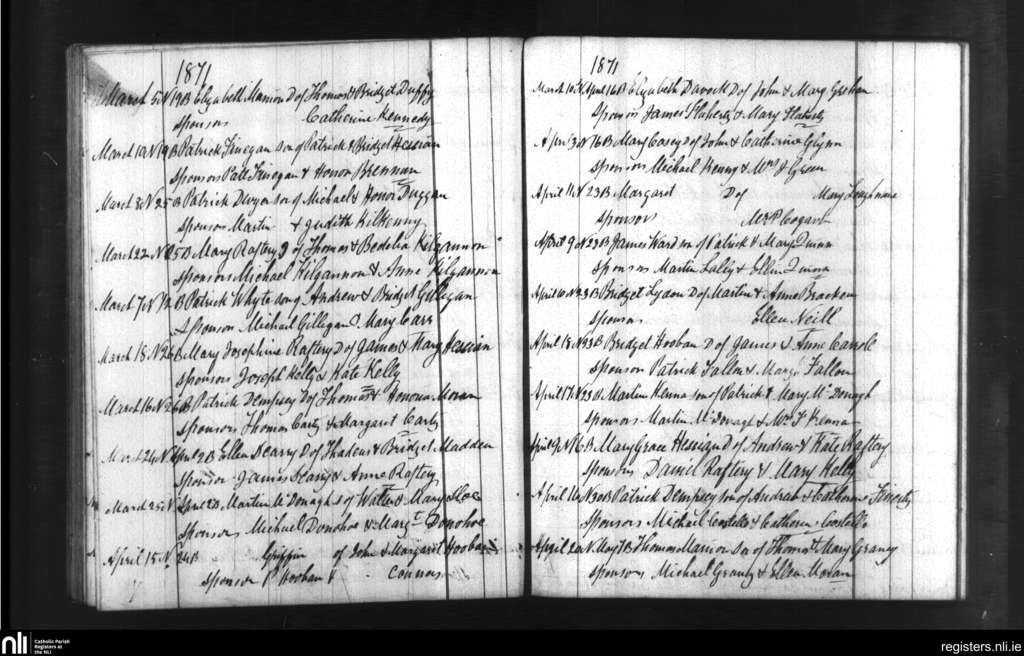 1871
March 5 N 19 B Elizabeth Marrion D of Thomas & Bridget Duffy
Sponsors Catherine Kennedy
March 10 N 19 B Patrick Finegan son of Patrick & Bridget Hessian
Sponsors Patt Finegan & Honor Brennan
March 8 N 25 B Patrick Dwyer son of Michael & Honor Duggan
Sponsors Martin & Judith Kilkenny
March 22 N 25 B Mary Raftery D of Thomas & Bedelia Kilgannon
sponsors Michael Kilgannon & Anne Kilgannon
March 7 N 12 B Patrick Whyte son of Andrew & Bridget Gilligan
Sponsor Michael Gilligan & Mary Carr
March 18 N 26 B Mary Josephine Raftery D of James & Mary Hessian
sponsors Joseph Kelly & Kate Kelly
March 16 N 26 B Patrick Dempsey D of Thomas & Honour Moran
Sponsors Thomas Carty & Margaret Carty
March 24 N April 2 B Ellen Deary D of & Bridget Madden
Sponsor James & Anne Raftery
March 25 N April B Martin McDonagh S of & Mary
Sponsors Michael Donohoe & Margt Donohoe
April 15 N 24 B Griffin of John & Margaret Hooban
sponsor P Hooban & Connors
1871
March 10 N April 16 B Elizabeth D of John & Mary
Sponsors James Flaherty & Mary Flaherty
Apr 3 N 16 B Mary Casey D of John & Catherine Glynn
sponsors Michael Kenny & Mrs J Green
April 11 N 23 B Margaret D of Mary Loughnane
sponsors Mrs P Cogart
April 9 N 23 B James Ward son of Patrick & Mary Quinn
sponsors Martin Lally & Ellen Quinn
April 10 N 23 B Bridget Lyden D of Martin & Anne Bracken
sponsors Ellen Neill
April 18 N 23 B Bridget Hooban D of James & Anne Carroll
Sponsors Patrick Fallon & Mary Fallon
April 17 N 23 B Martin Kenna son of Patrick & Mary McDonagh
sponsors Martin McDonagh & Mrs F Kenna
April 9 N 16 B Mary Grace Hessian D of Andrew & Kate Raftery
Sponsors Daniel Raftery & Mary Kelly
April 16 N 30 B Patrick Dempsey son of Andrew & Catherine Finerty
Sponsors Michael Costello & Catherine Costello
April 20 N May 7 B Thomas Marrion son of Thomas & Mary Grany
sponsors Michael Grany & Ellen Moran
nli
Catholic Parish
Registers at
the NLI
registers.nli.ie